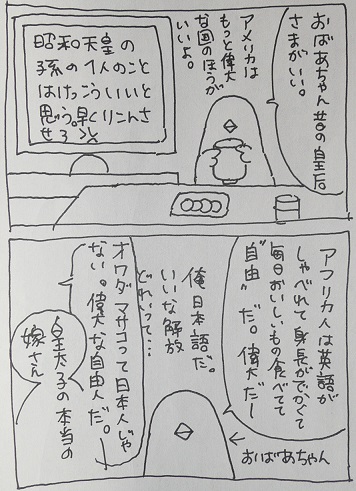 おばあちゃん昔の皇后
さまがいい。
アメリカは
もっと偉大
な国のほうが
いいよ。
昭和天皇の
孫の1人のこと
はけっこういいと
思う。早くりこんさ
せろ
アフリカ人は英語が
しゃべれて身長がでかくて
毎日おいしいもの食べてて
"自由"だ。偉大だー
俺日本語だ。
いいな解放
どれいって…
オワダマサコって日本人じゃ
ない。偉大な自由人だ。
皇太子の本当の
嫁さん
おばあちゃん